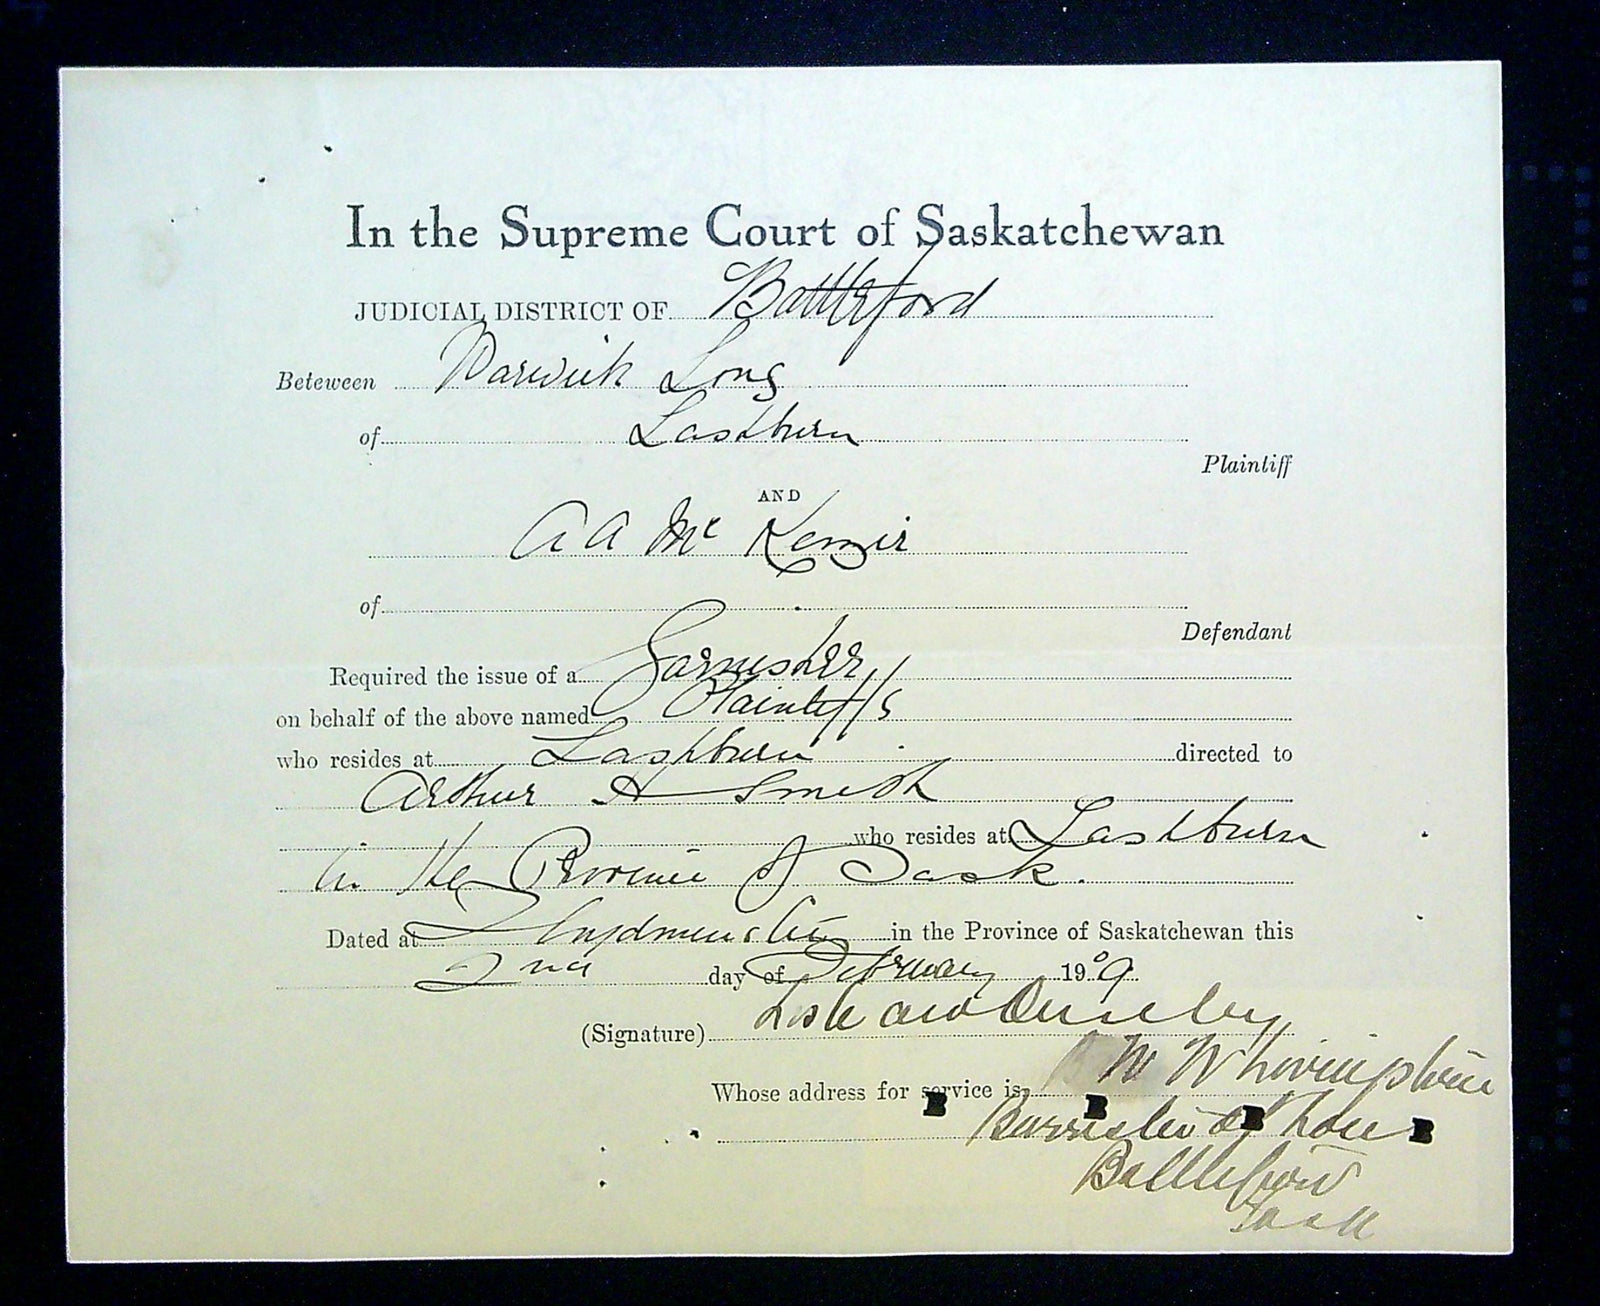 In the Supreme Court of Saskatchewan
JUDICIAL DISTRICT OF Battleford
Beteween Warwick Long
of Lashburn
Plaintiff
AND
A A Mc Kenzie
of
Defendant
Required the issue of a Garnishee
on behalf of the above named Plaintiff/s
who resides at Lashburn directed to
Arthur A Smith
who resides at Lashburn
in the Province of Sask.
Dated at Lloydminster in the Province of Saskatchewan this
2nd day of February 1909
(Signature)
Whose address for service is
Barrister at
Battleford
Sask